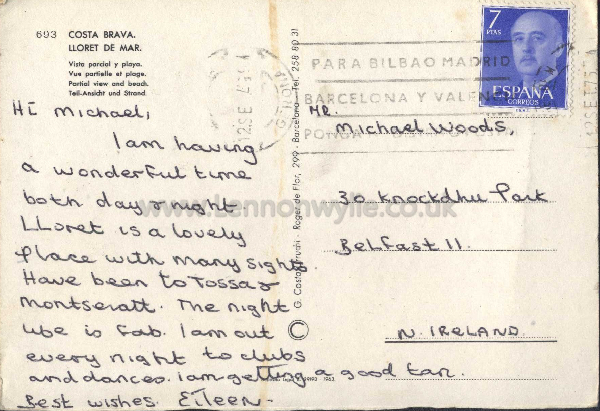 693 COSTA BRAVA.
LLORET DE MAR.
Vista parcial y playa.
Vue partielle et plage.
Partial view and beach.
Teil-Ansicht und Strand.
Hi Michael,
I am having
a wonderful time
both day & night
LLoret is a lovely
place with many sights.
Have been to Tossa &
Montseratt. The night
life is fab. I am out
every night to clubs
and dances. I am getting a good tan.
Best wishes Eileen-
G. Costa Roger de Flor, 299 - Barcelona - Tel. 258 80 31
©
PARA BILBAO MADRID
BARCELONA Y VALEN
GERONA
7
PTAS
ESPAÑA
CORREOS
Mr.
Michael Woods,
30 Knockdhu Park
Belfast 11.
N. IRELAND.
www.Lennonwylie.co.uk